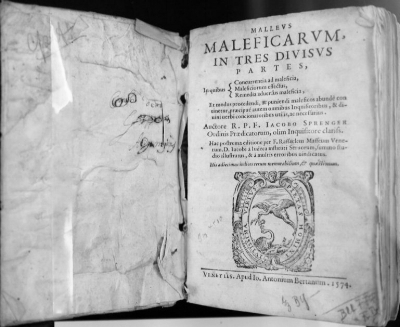 MALLEVS
MALEFICARVM,
IN TRES DIVISVS
PARTES,
In quibus
Concurrentia ad maleficia,
Maleficiorum effectus,
Remedia aduersus maleficia,
Et modus procedendi, & puniendi maleficos abundè con
tinetur, præcipuè autem omnibus Inquisitoribus, & di-
uini verbi concionatoribus vtilis, ac necessarius.
Auctore R. P. F. IACOBO SPRENGER
Ordinis Prædicatorum, olim Inquisitore clariss.
Hac postrema editione per F. Raffaelem Maffeum Vene-
tum. D. Iacobi à Iudeca instituti Seruorum, summo stu-
dio illustratus, & à multis erroribus vendicatus.
His adiecimus indices rerum memorabilium, & quæstionum.
VENETIIS, Apud Io. Antonium Bertanum. 1574.